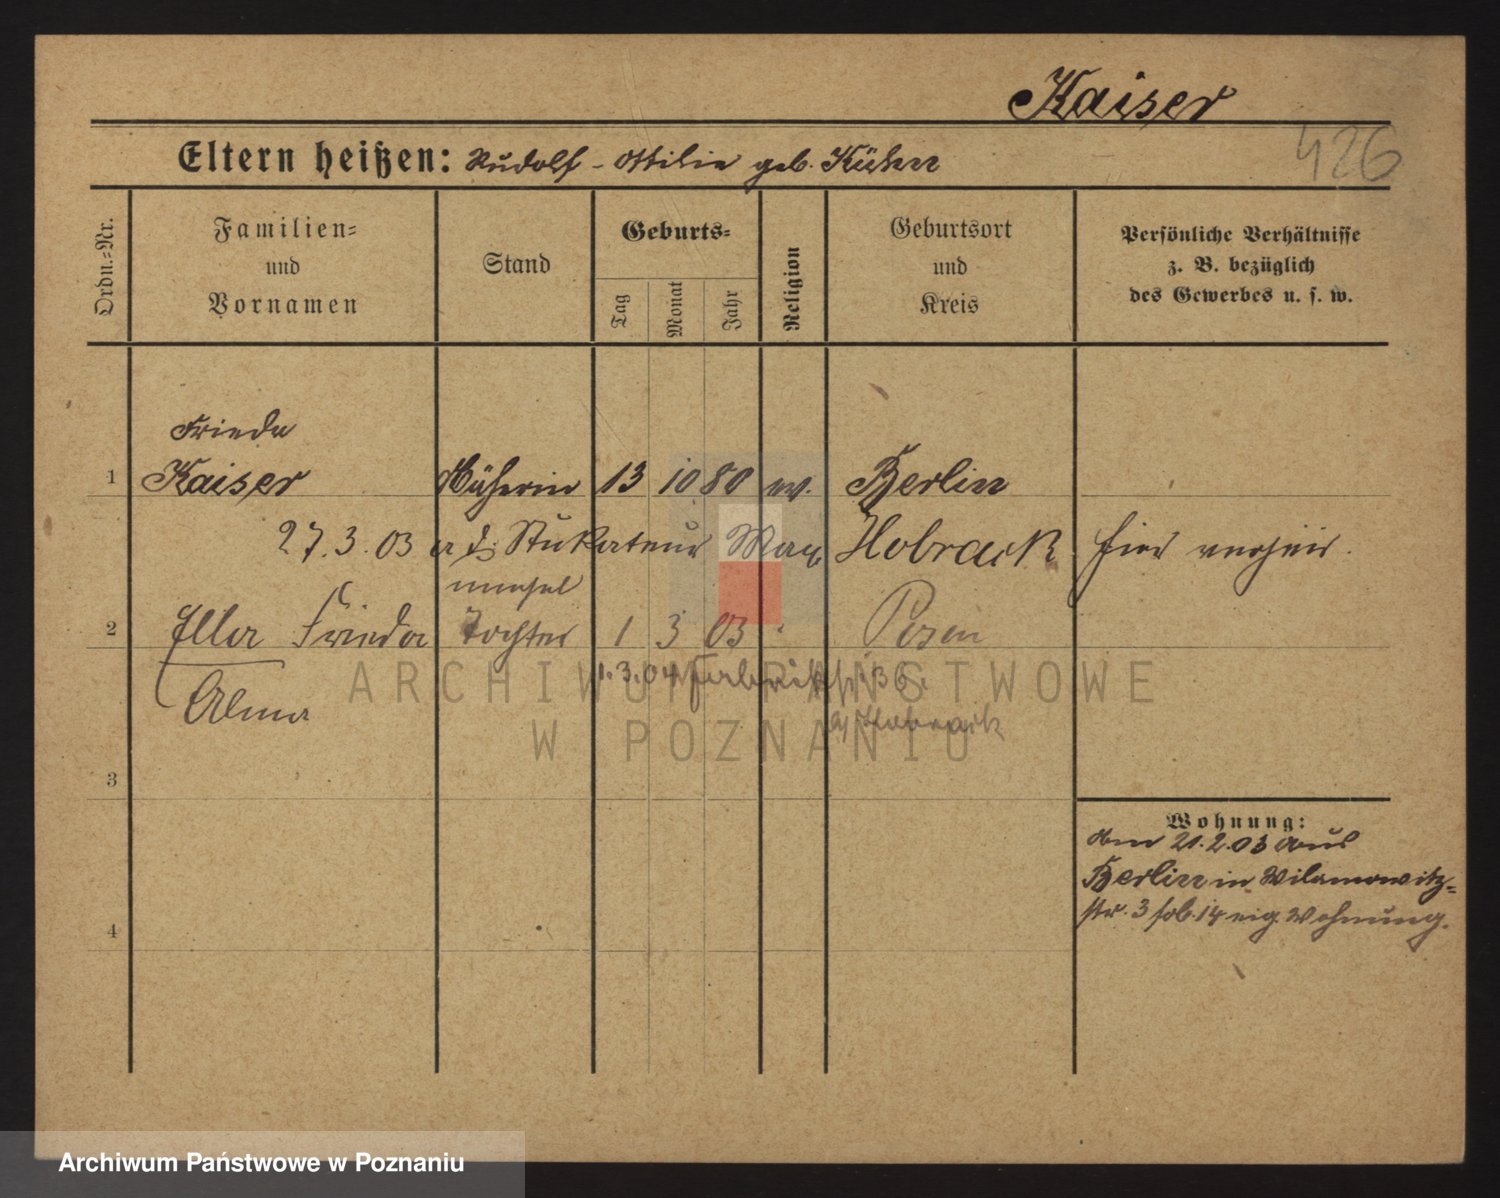 Kaiser
426
Eltern heißen: Rudolf - Ottilie geb. Kühn
Ordn.-Nr.
Familien-
und
Vornamen
Stand
Geburts-
Tag
Monat
Jahr
Religion
Geburtsort
und
Kreis
Persönliche Verhältnisse
z. B. bezüglich
des Gewerbes u. s. w.
Frieda
1 Kaiser Näherin 13 10 80 Berlin
27.3.03 a d. Stukateur Max Hobrack hier verheir.
unehel
2 Ella Frieda Tochter 1 3 03 Posen
Alma
1.3.04
Hobrack
3
4
Wohnung:
Am 21.2.03 aus
Berlin in Wilamowitz-
str. 3 14 eig Wohnung.
ARCHIWUM PAŃSTWOWE
W POZNANIU
Archiwum Państwowe w Poznaniu